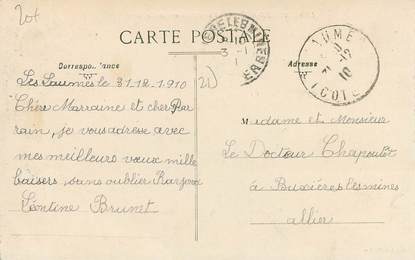 20f
CARTE POSTALE
Correspondance
Adresse
Les Laumes le 31-12-1910
(21)
Chère Marraine et cher Par
rain, je vous adresse avec
mes meilleurs vœux mille
baisers, sans oublier
Léontine Brunet
Madame et Monsieur
Le Docteur Chapoutot
à Buxières les mines
allier